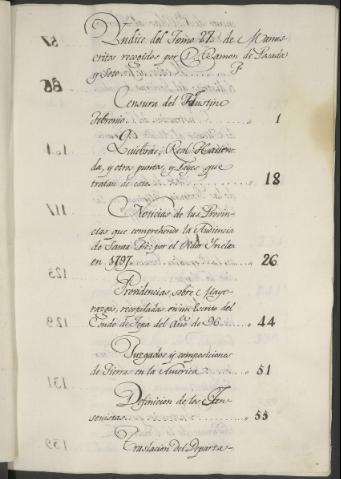 Yndice del Tomo 27. de Manus-
critos recogidos por D. Ramon de Posada
y Soto
Censura del Faustino
Petronio. 1
Quiebras, Real Hacien-
da, y otros puntos, y Leyes que
tratan de este. 18
Noticias de las Provin-
cias que comprehende la Audiencia
de Santa Fe: por el Oidor Inclan
en 1797. 26
Providencias sobre Mayo-
razgos, recopiladas en un Escrito del
Conde de Tepa del Año de 96. 44
Juzgados y composiciones
de Tierras en la America. 51
Definicion de los Jan-
senistas. 55
Traslacion del Departa-